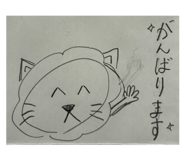 がんばります